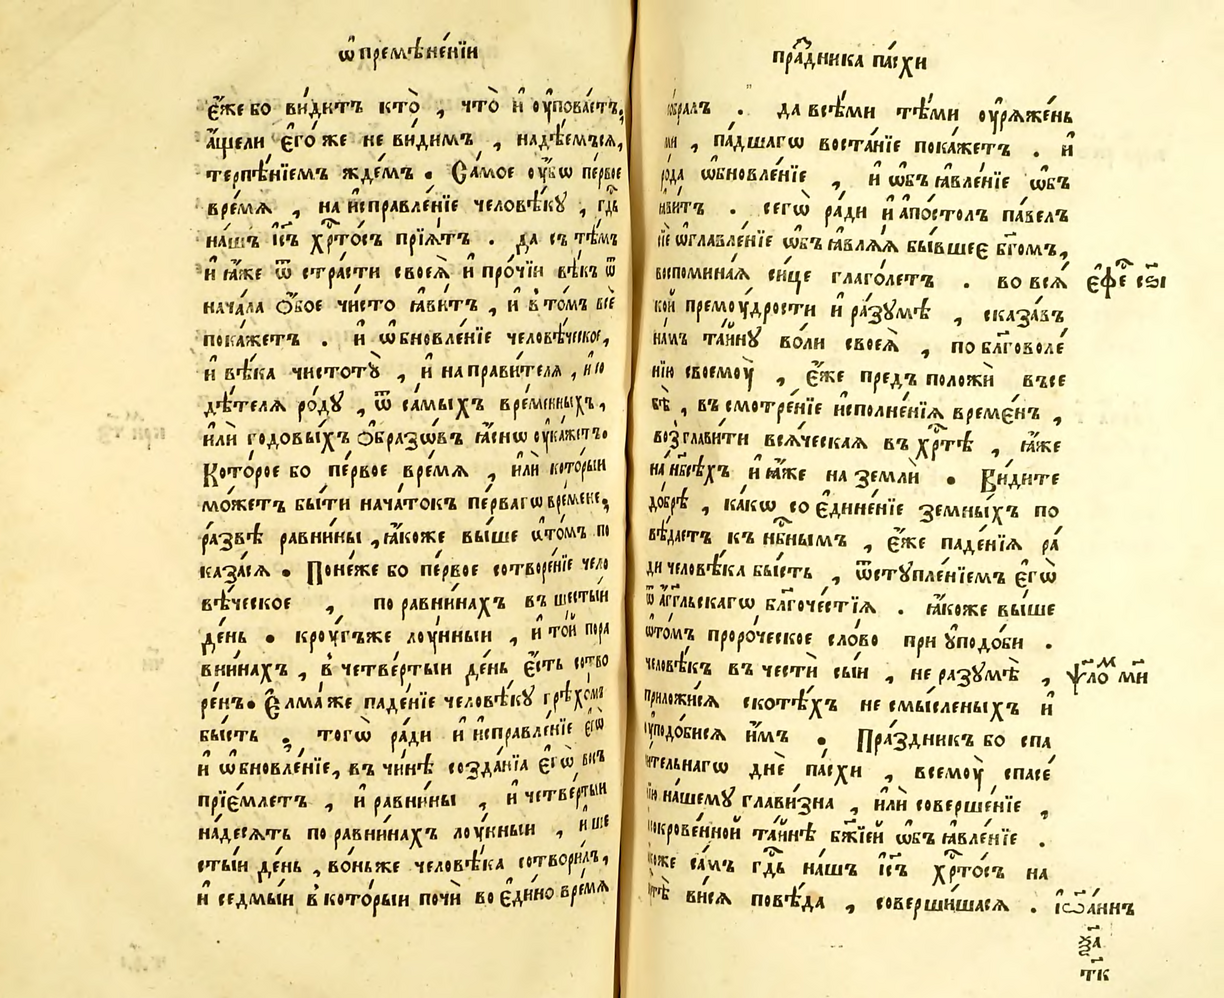 ѡ҆ премѣне́нїи
є҆́же бо ви́дитъ кто̀ , что̀ и҆ оу҆пова́етъ;
а҆́щели є҆го́же не ви́димъ , надѣ́емъся,
терпѣ́нїемъ жде́мъ . Са́мое оу҆́бѡ пе́рвое
вре́мѧ , на и҆справле́нїе человѣ́кꙋ , гдⷭ҇ь
на́шъ і҆с҃ъ хрⷭ҇то́съ прїѧ́тъ . да съ тѣ́мъ
и҆ ꙗ҆́же ѿ стра́сти своеѧ̀ и҆ про́чїи вѣ́къ ѿ
нача́ла ѻ҆́бое чи́сто ꙗ҆ви́тъ , и҆ в то́мъ всѐ
пока́жетъ . и҆ ѡ҆бновле́нїе человѣ́ческое,
и҆ вѣ́ка чистотꙋ̀ , и҆ на прави́телѧ , и҆ со
дѣ́телѧ ро́дꙋ , ѿ са́мыхъ вре́менныхъ ,
и҆лѝ годовы́хъ ѻ҆́бразѡвъ ꙗ҆́снѡ оу҆ка́жетъ .
Кото́рое бо пе́рвое вре́мѧ , и҆лѝ кото́рыи
мо́жетъ бы́ти нача́токъ пе́рвагѡ вре́мене;
ра́звѣ равни́ны , ꙗ҆́коже вы́ше ѡ҆ то́мъ по
каза́сѧ . Поне́же бо пе́рвое сотворе́нїе чело
вѣ́ческое , по равни́нахъ въ шесты́и
де́нь . кро́угъже лоу́нныи , и҆ то́й по ра
вни́нахъ , в четве́ртыи де́нь є҆́сть сотво
ре́нъ . Є҆лма́же паде́нїе человѣ́кꙋ грѣхо́мъ
бы́сть . тогѡ̀ ра́ди и҆ и҆справле́нїе є҆гѡ̀
и҆ ѡ҆бновле́нїе, въ чи́нѣ созда́нїа є҆гѡ̀ вкъ
прїе́млетъ , и҆ равни́ны , и҆ четве́ртыи
на́десѧть по равни́нахъ лоу́нныи , и҆ ше
сты́и де́нь , во́ньже человѣ́ка сотвори́лъ,
и҆ седмы́и в кото́рыи почѝ во є҆ди́но вре́мѧ
пра́здника па́схи
собра́лъ . да всѣ́ми тѣ́ми оу҆рѧже́нь
ми , па́дшагѡ воста́нїе пока́жетъ . и҆
ро́да ѡ҆бновле́нїе , и҆ ѡ҆бъꙗвле́нїе ѡ҆бъ
ꙗви́тъ . сегѡ̀ ра́ди и҆ а҆по́столъ па́велъ
сїе ѡ҆главле́нїе ѡ҆бъꙗвлѧ́ѧ бы́вшее бг҃омъ,
воспомина́ѧ си́це глаго́летъ . во всѧ́ є҆фе́ сн҃і
кой премоу́дрости и҆ ра́зꙋмѣ , сказа́въ
на́мъ та́йнꙋ во́ли своеѧ̀ , по бл҃говоле́
нїю своемоу̀ , є҆́же предъположѝ въ се
бѣ̀ , въ смотре́нїе и҆сполне́нїѧ време́нъ ,
возглави́ти всѧ́ческаѧ въ хрⷭ҇тѣ̀ , ꙗ҆́же
на нб҃сѣ́хъ и҆ ꙗ҆́же на землѝ . Ви́дите
до́брѣ , ка́кѡ соєдине́нїе земны́хъ по
вѣ́даетъ къ нбⷭ҇нымъ , є҆́же паде́нїѧ ра́
ди человѣ́ка бы́сть , ѿступле́нїемъ є҆гѡ̀
ѿ а҆́гг҃льскагѡ бл҃гоче́стїѧ . ꙗ҆́коже вы́ше
ѡ҆ то́мъ проро́ческое сло́во при ꙋ҆подо́би .
человѣ́къ въ че́сти сы́и , не разꙋмѣ̀ , ѱало́м м҃и
приложи́сѧ ското́хъ не смы́сленыхъ и҆
оу҆подо́бисѧ и҆́мъ . Пра́здникъ бо спа
си́тельнагѡ днѐ па́схи , всемоу̀ спасе́
нїю на́шемꙋ глави́зна , и҆лѝ соверше́нїе ,
сокрове́нной та́йнѣ бж҃їей ѡ҆бъꙗвле́нїе .
ꙗ҆́коже са́мъ гдⷭ҇ь на́шъ і҆с҃ъ хрⷭ҇то́съ на
кртⷭ҇ѣ̀ висѧ̀ повѣ́да , соверши́шасѧ . і҆ѡа́ннъ
за҃
тк҃